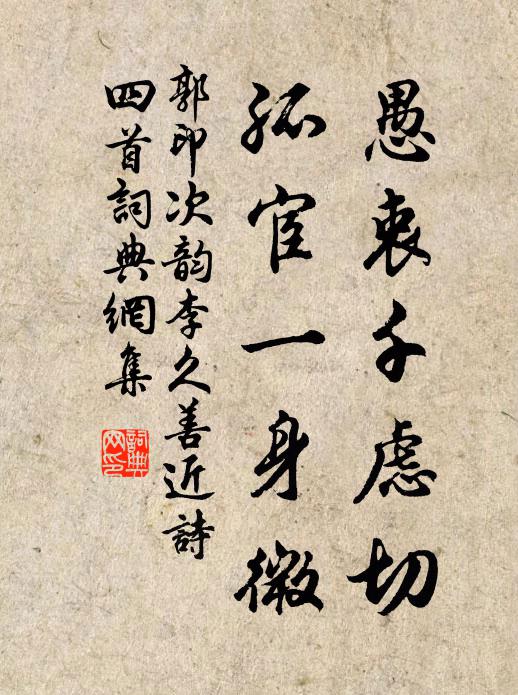 愚衷千慮切
孤宦一身微
郭印次韵李久善近詩
四首詞典網集
詞典
网印